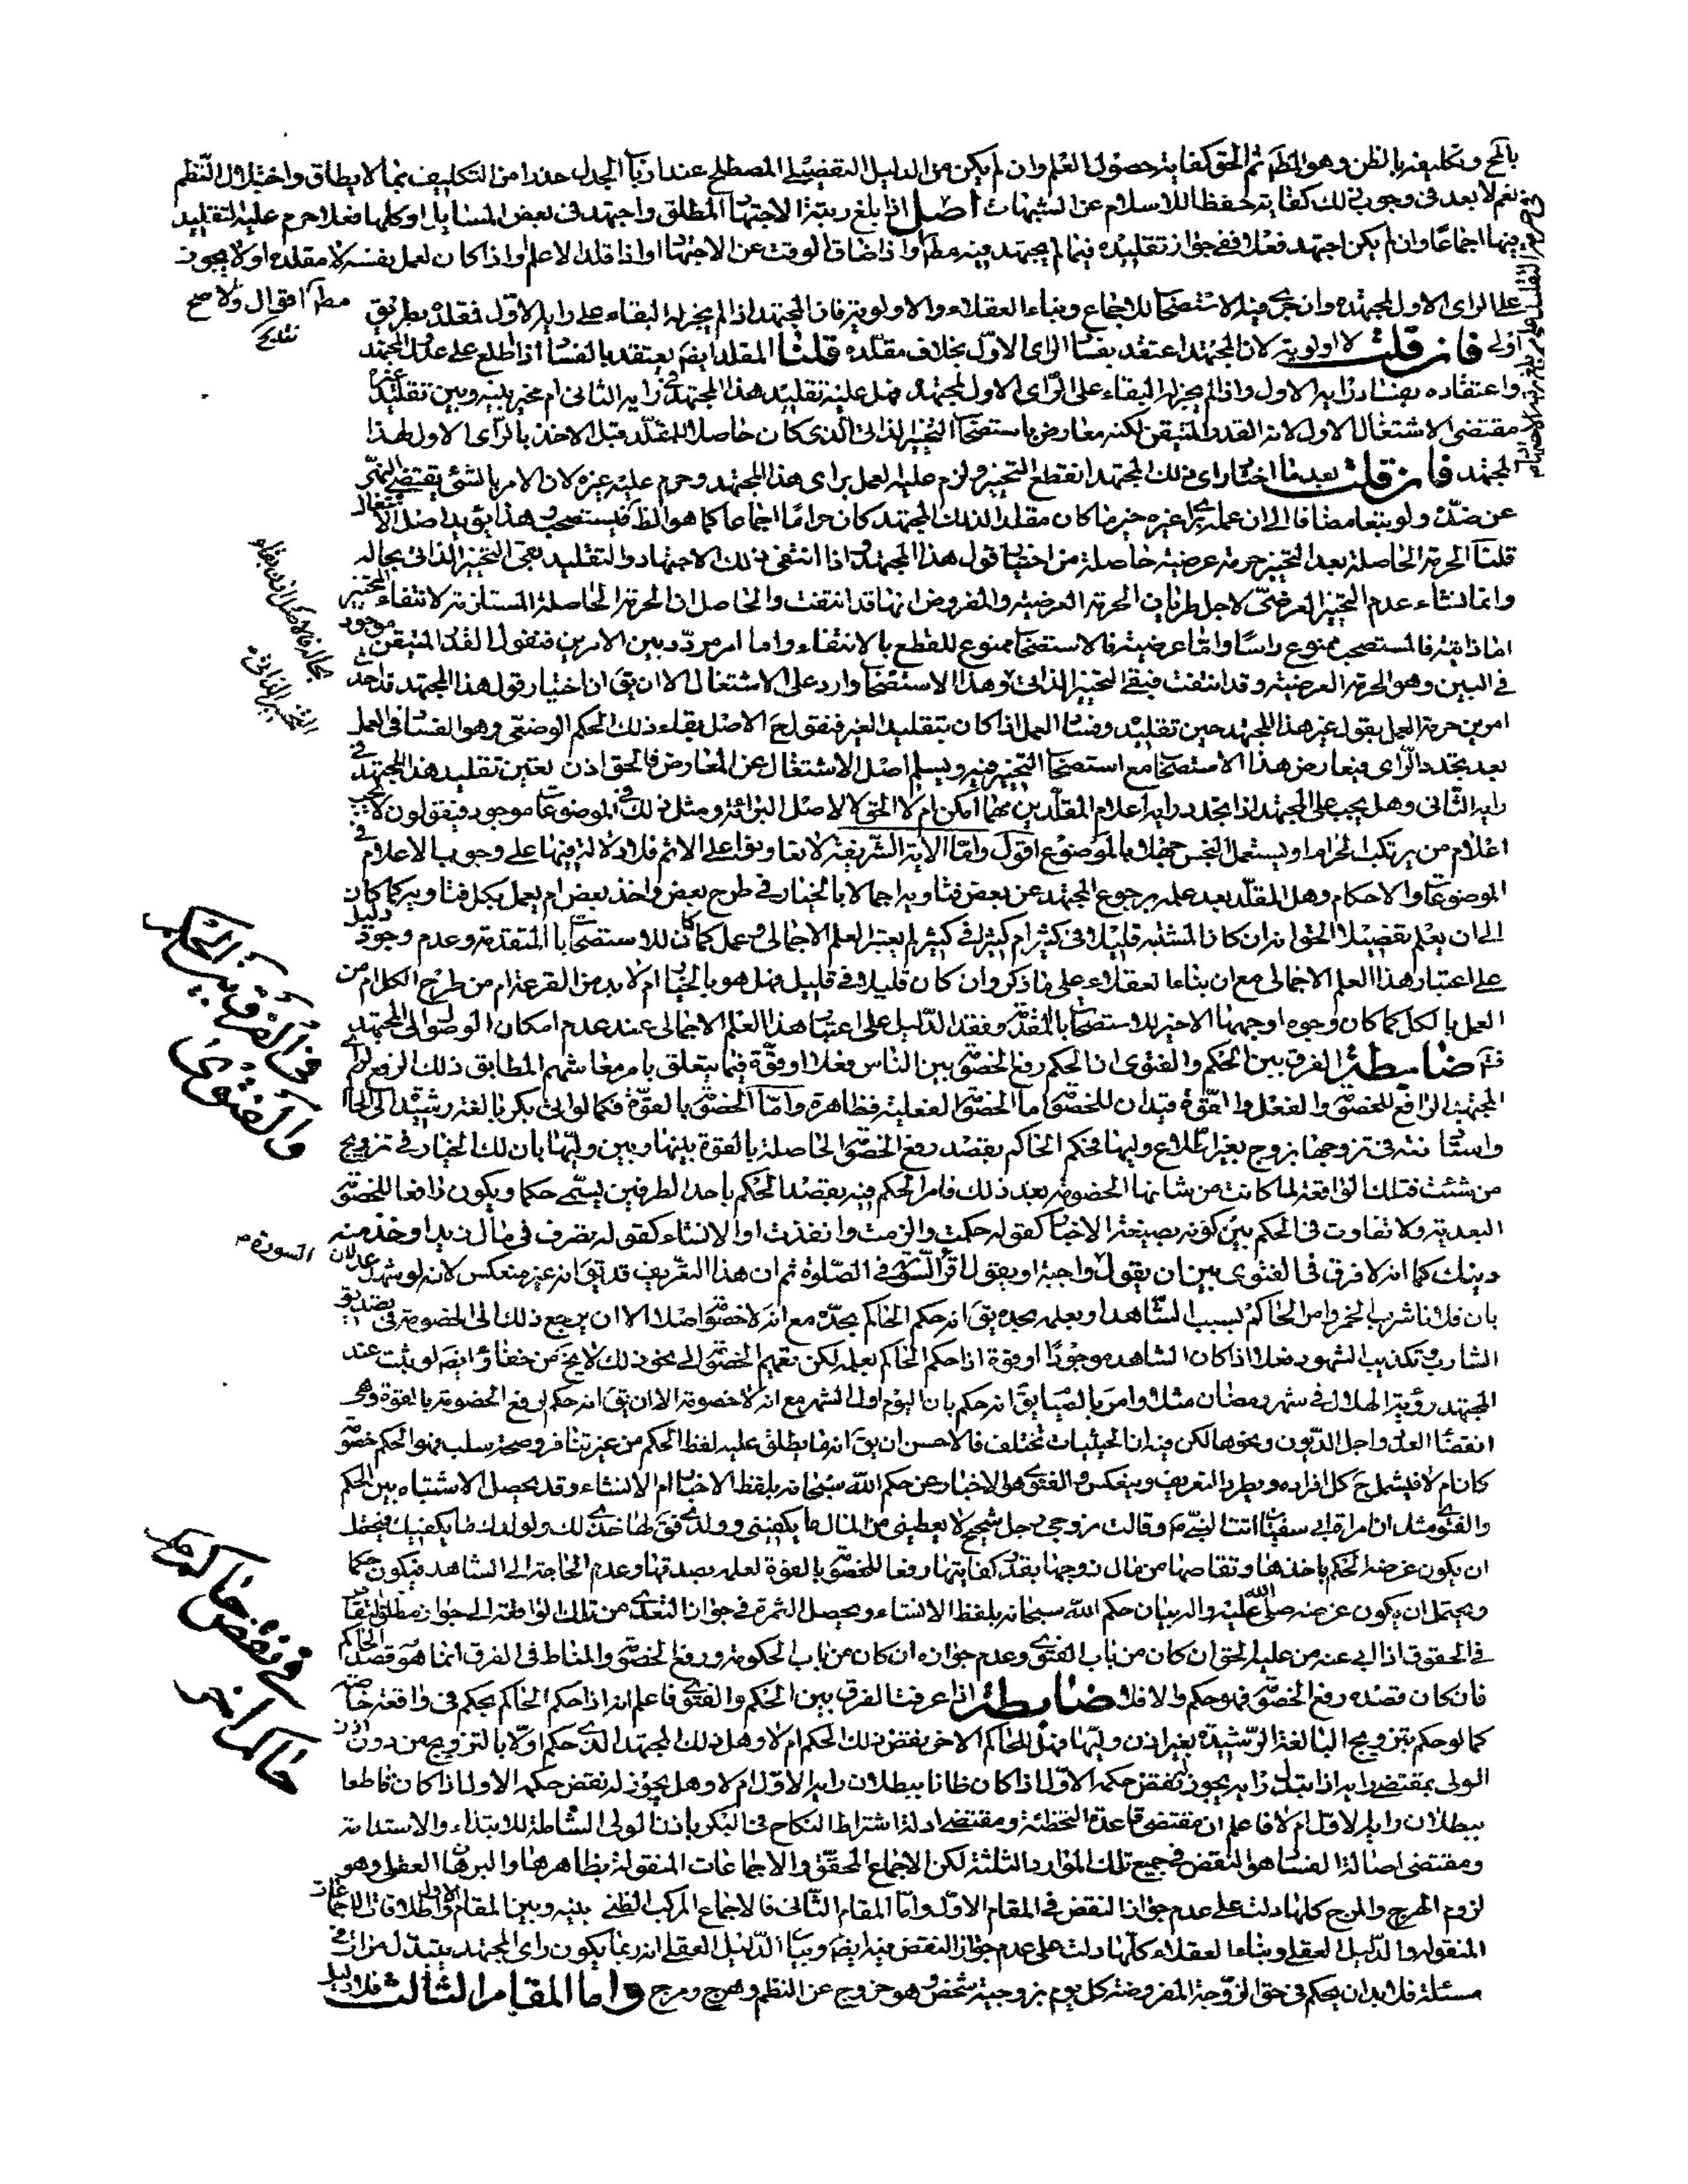 بالحج وتكليفه بالظن وهو الظ ثم الحق كفاية حصول العلم وان لم يكن من الدليل التفصيلى المصطلح عند ارباب الجدل حذرا من التكليف بما لا يطاق واختلال النظم
نعم لا بعد فى وجوب ذلك كفاية حفظا للاسلام عن الشبهات اصل اذا بلغ رتبة الاجتهاد المطلق واجتهد فى بعض المسايل او كلها فعلا حرم عليه التقليد
فيها اجماعا وان لم يكن اجتهد فعلا ففى جواز تقليده فيما لم يجتهد فيه مطم او اذا ضاق الوقت عن الاجتهاد او اذا قلد الاعلم واذا كان لعمل نفسه لا مقلده او لا يجوز
مطم اقوال
على الراى الاول لمجتهده وان جرى فيه الاستصحاب للاجماع وبناء العقلاء والاولوية فان المجتهد اذا لم يجز له البقاء على رايه الاول فمقلده بطريق
اولى فان قلت لا اولوية لان المجتهد اعتقد بفساد الراى الاول بخلاف مقلده قلنا المقلد ايضا يعتقد بالفساد اذا اطلع على عدول المجتهد
واعتقاده بفساد رايه الاول واذا لم يجز له البقاء على الراى الاول لمجتهد فهل عليه تقليد هذا المجتهد فى رايه الثانى ام مخير بينه وبين تقليد غيره
مقتضى الاشتغال الاول لانه القدر المتيقن لكنه معارض باستصحاب التخيير الذاتى الذى كان حاصلا للمقلد قبل الاخذ بالراى الاول لهذا
المجتهد فان قلت بعد ما اختار راى ذلك المجتهد انقطع التخيير ولزم عليه العمل براى هذا المجتهد وحرم عليه غيره لان الامر بالشئ يقتضى النهى
عن ضده ولو تبعا مضافا الى ان عمله براى غيره حين ما كان مقلدا لذلك المجتهد كان حراما اجماعا كما هو الظ فيستصحب هذا
قلنا الحرمة الحاصلة بعد التخيير حرمة عرضية حاصلة من اختيار قول هذا المجتهد واذا انتفى ذلك الاجتهاد والتقليد بقى التخيير الذاتى بحاله
وانما نشاء عدم التخيير العرضى لاجل طريان الحرمة العرضية والمفروض انها قد انتفت والحاصل ان الحرمة الحاصلة المستلزمة لانتفاء التخيير
اما ذاتية فالمستصحب ممنوع راسا واما عرضية فالاستصحاب ممنوع للقطع بالانتفاء واما امر مردد بين الامرين فنقول القدر المتيقن موجود
فى البين وهو الحرمة العرضية وقد انتفت فبقى التخيير الذاتى وهذا الاستصحاب وارد على الاشتغال الا ان يق ان اختيار قول هذا المجتهد قد احدث
امرين حرمة العمل بقول غير هذا المجتهد حين تقليده وفساد العمل اذا كان بتقليد الغير فنقول ح الاصل بقاء ذلك الحكم الوضعى وهو الفساد فى العمل
بعد تجدد الراى فيعارض هذا الاستصحاب مع استصحاب التخيير فيه ويسلم اصل الاشتغال عن المعارض فالحق اذن تعين تقليد هذا المجتهد فى
رايه الثانى وهل يجب على المجتهد اذا تجدد رايه اعلام المقلدين مهما امكن ام لا الحق لا لاصل البرائة ومثل ذلك فى الموضوعات موجود فيقولون لا يجب
اعلام من يرتكب الحرام او يستعمل النجس جهلا بالموضوع اقول واما الاية الشريفة لا تعاونوا على الاثم فلا دلالة فيها على وجوب الاعلام فى
الموضوعات والاحكام وهل المقلد بعد علمه برجوع المجتهد عن بعض فتاويه اجمالا بالخيار فى طرح بعض واخذ بعض ام يعمل بكل فتاويه كما كان
الى ان يعلم تفصيلا الحق انه ان كان المشتبه قليلا فى كثير ام كثيرا فى كثير لم يعتبر العلم الاجمالى وعمل كما كان للاستصحاب المتقدمة وعدم وجود دليل
على اعتبار هذا العلم الاجمالى مع ان بناء العقلاء على ما ذكر وان كان قليلا فى قليل فهل هو بالخيار ام لا بد من القرعة ام من طرح الكل ام من
العمل بالكل كما كان وجوه اوجهها الاخير للاستصحاب المتقدم وفقد الدليل على اعتبار هذا العلم الاجمالى عند عدم امكان الوصول الى المجتهد
ضابطة الفرق بين الحكم والفتوى ان الحكم رفع الخصومة بين الناس فعلا او قوة فيما يتعلق بامر معاشهم المطابق ذلك الرفع لراى
المجتهد الرافع للخصومة والفعل والقوة قيدان للخصومة اما الخصومة الفعلية فظاهرة واما الخصومة بالقوة فكما لو اتى بكر بالغة رشيدة الى الحاكم
واستاذنته فى تزوجها بزوج بغير اطلاع وليها فحكم الحاكم بقصد رفع الخصومة الحاصلة بالقوة بينها وبين وليها بان لك الخيار فى تزويج
من شئت فتلك الواقعة لما كانت من شانها الخصومة بعد ذلك فامر الحكم فيه بقصد الحكم باحد الطرفين يسمى حكما ويكون رافعا للخصومة
البعدية ولا تفاوت فى الحكم بين كونه بصيغة الاخبار كقوله حكمت والزمت وانفذت او الانشاء كقوله تصرف فى مال زيد او خذ منه
دينك كما انه لا فرق فى الفتوى بين ان يقول السورة واجبة او يقول اقرأ السورة فى الصلوة ثم ان هذا التعريف قد يق انه غير منعكس لانه لو شهد عدلان
بان فلانا شرب الخمر وامر الحاكم بسبب الشاهد او بعلمه بحده يق انه حكم الحاكم بحده مع انه لا خصومة اصلا الا ان يرجع ذلك الى الخصومة فى تصديق
الشارب وتكذيب الشهود فعلا اذا كان الشاهد موجودا او قوة اذا حكم الحاكم بعلمه لكن تعميم الخصومة الى نحو ذلك لا يخ من خفاء وايضا لو ثبت عند
المجتهد رؤية الهلال فى شهر رمضان مثلا وامر بالصيام يق انه حكم بان اليوم اول الشهر مع انه لا خصومة الا ان يق انه حكم لرفع الخصومة بالقوة وهى
انقضاء العدد واجل الديون ونحوها لكن فيه ان الحيثيات تختلف فالاحسن ان يق انه ما يطلق عليه لفظ الحكم من غير تنافر وصحة سلب فهو الحكم خصومة
كان ام لا فيشمل ح كل افراده ويطرد التعريف وينعكس والفتوى هو الاخبار عن حكم الله سبحانه بلفظ الاخبار ام الانشاء وقد يحصل الاشتباه بين الحكم
والفتوى مثل ان امراة ابى سفيان اتت النبى ص وقالت زوجى رجل شحيح لا يعطينى من المال ما يكفينى وولدى فق لها خذى لك ولولدك ما يكفيك فيحتمل
ان يكون غرضه الحكم باخذها وتقاصها من مال زوجها بقدر كفايتها رفعا للخصومة بالقوة لعلمه بصدقها وعدم الحاجة الى الشاهد فيكون حكما
ويحتمل ان يكون غرضه صلى الله عليه واله بيان حكم الله سبحانه بلفظ الانشاء ويحصل الثمرة فى جواز التعدى من تلك الواقعة الى جواز مطلق التقاص
فى الحقوق اذا ابى عنه من عليه الحق ان كان من باب الفتوى وعدم جوازه ان كان من باب الحكومة ورفع الخصومة والمناط فى الفرق انما هو قصد الحاكم
فان كان قصده رفع الخصومة فهو حكم والا فلا ضابطة اذا عرفت الفرق بين الحكم والفتوى فاعلم انه اذا حكم الحاكم بحكم فى واقعة خاصة
كما لو حكم بتزويج البالغة الرشيدة بغير اذن وليها فهل للحاكم الاخر نقض ذلك الحكم ام لا وهل ذلك المجتهد الذى حكم اولا بالتزويج من دون اذن
الولى بمقتضى رايه اذا تبدل رايه يجوز نقض حكمه الاول اذا كان ظانا ببطلان رايه الاول ام لا وهل يجوز له نقض حكمه الاول اذا كان قاطعا
ببطلان رايه الاول ام لا فاعلم ان مقتضى قاعدة التخطئة ومقتضى ادلة اشتراط النكاح فى البكر باذن الولى الشاملة للابتداء والاستدامة
ومقتضى اصالة الفساد هو النقض فى جميع تلك الموارد الثلثة لكن الاجماع المحقق والاجماعات المنقولة بظاهرها والبرهان العقلى وهو
لزوم الهرج والمرج كلها دلت على عدم جواز النقض فى المقام الاول واما المقام الثانى فالاجماع المركب الظنى بينه وبين المقام الاول واطلاقات الاجماعات
المنقولة والدليل العقلى وبناء العقلاء كلها دلت على عدم جواز النقض فيه ايضا وبيان الدليل العقلى انه ربما يكون راى المجتهد يتبدل مرارا فى
مسئلة فلا بد ان يحكم فى حق الزوجة المفروضة كل يوم بزوجية شخص وهو خروج عن النظم وهرج ومرج واما المقام الثالث فلا دليل
بحاله فالاصل اذن بقاء
التخيير الذاتى
فى الفرق بين الحكم
والفتوى
السورة م
فى نقض حاكم حكم
حاكم اخر